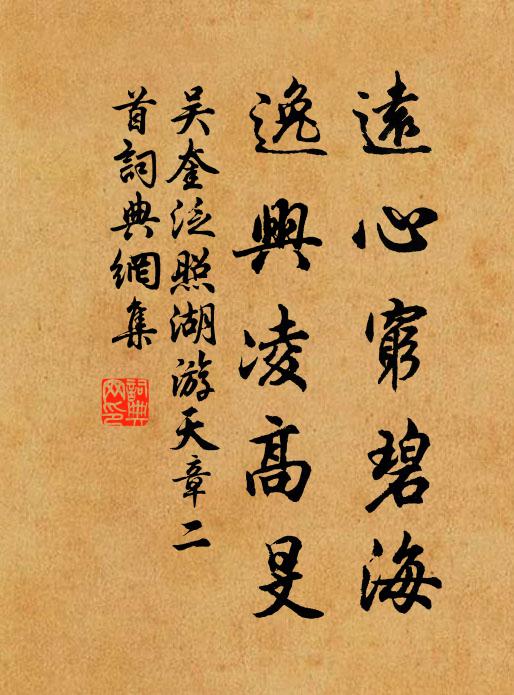 遠心窮碧海
逸興凌高旻
吴奎泛照湖游天章二
首詞典網集
詞典網印